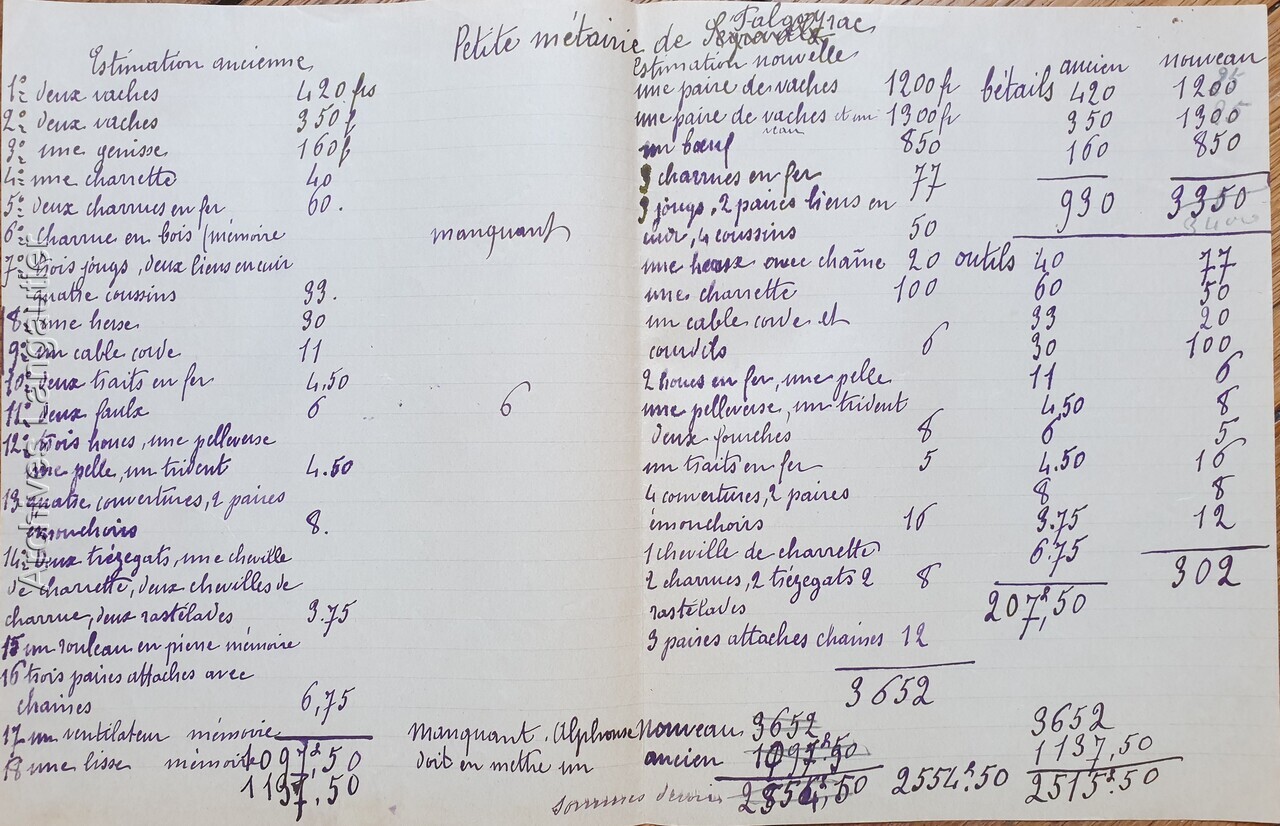 Petite métairie de Falgoyrac
Estimation ancienne
1º deux vaches 420 frs
2º deux vaches 350 f
3º une genisse 160 f
4º une charrette 40
5º deux charrues en fer 60.
6º charrue en bois (mémoire manquant
7º trois jougs, deux liens en cuir
quatre coussins 33.
8º une herse 30
9º un cable corde 11
10º deux traits en fer 4,50
11º deux faulx 6 6
12º trois houes, une pelleverse
une pelle, un trident 4.50
13 quatre couvertures, 2 paires
émouchoirs 8.
14º deux trézegats, une cheville
de charrette, deux chevilles de
charrue, deux rastélades 3.75
15 un rouleau en pierre mémoire
16 trois paires attaches avec
chaines 6,75
17 un ventilateur mémoire manquant. (Alphonse
18 une lisse mémoire doit en mettre un
1097f,50
1137,50
Estimation nouvelle
une paire de vaches 1200 fr
une paire de vaches et un veau 1300 fr
un bœuf 850
3 charrues en fer 77
3 jougs, 2 paires liens en
cuir, 4 coussins 50
une herse avec chaîne 20
une charrette 100
un cable corde et
courdils 6
2 houes en fer, une pelle
une pelleverse, un trident
deux fourches 8
un traits en fer 5
4 couvertures, 2 paires
émouchoirs 16
1 cheville de charrette
2 charrues, 2 trézegats 2 8
rastélades
3 paires attaches chaines 12
3652
Nouveau 3652
ancien 1097f.50
2554,50 2554f.50
ancien nouveau
bétails 420 1200
350 1300
160 850
930 3350
3400
outils 40 77
60 50
33 20
30 100
11 6
4,50 8
6 5
4.50 16
8 8
3.75 12
6.75
207f,50 302
3652
1137,50
2515f.50
Archives Langaurier